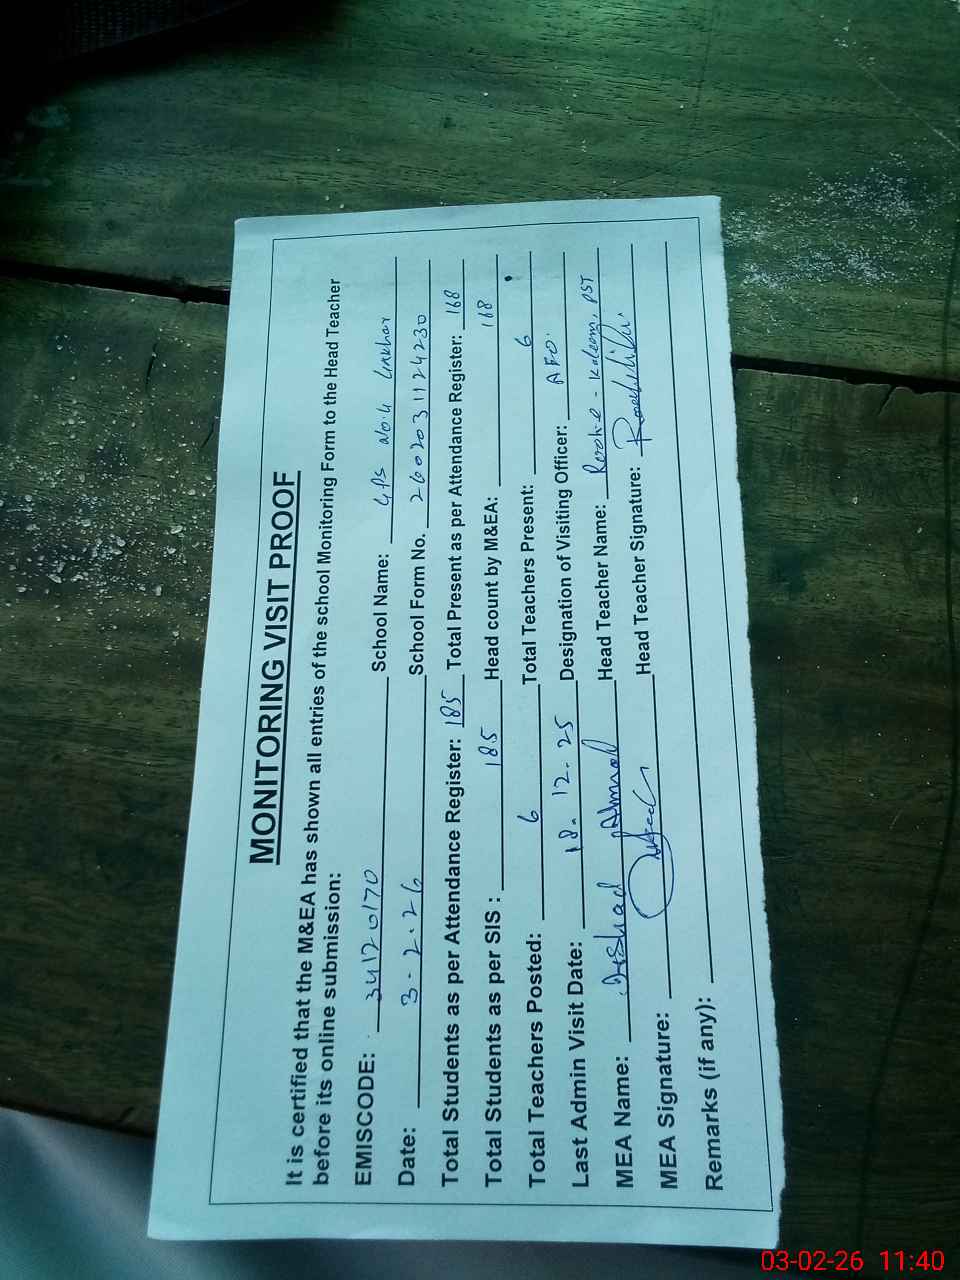 MONITORING VISIT PROOF
It is certified that the M&EA has shown all entries of the school Monitoring Form to the Head Teacher
before its online submission:
EMISCODE: 34120170 School Name: GPS No.4 Linkhar
Date: 3-2-26 School Form No. 2602031124230
Total Students as per Attendance Register: 185 Total Present as per Attendance Register: 168
Total Students as per SIS : 185 Head count by M&EA: 168
Total Teachers Posted: 6 Total Teachers Present: 6
Last Admin Visit Date: 18.12.25 Designation of Visiting Officer: AEO.
MEA Name: Irshad Ahmad Head Teacher Name: Kaleem, PST
MEA Signature: Head Teacher Signature:
Remarks (if any):
03-02-26 11:40